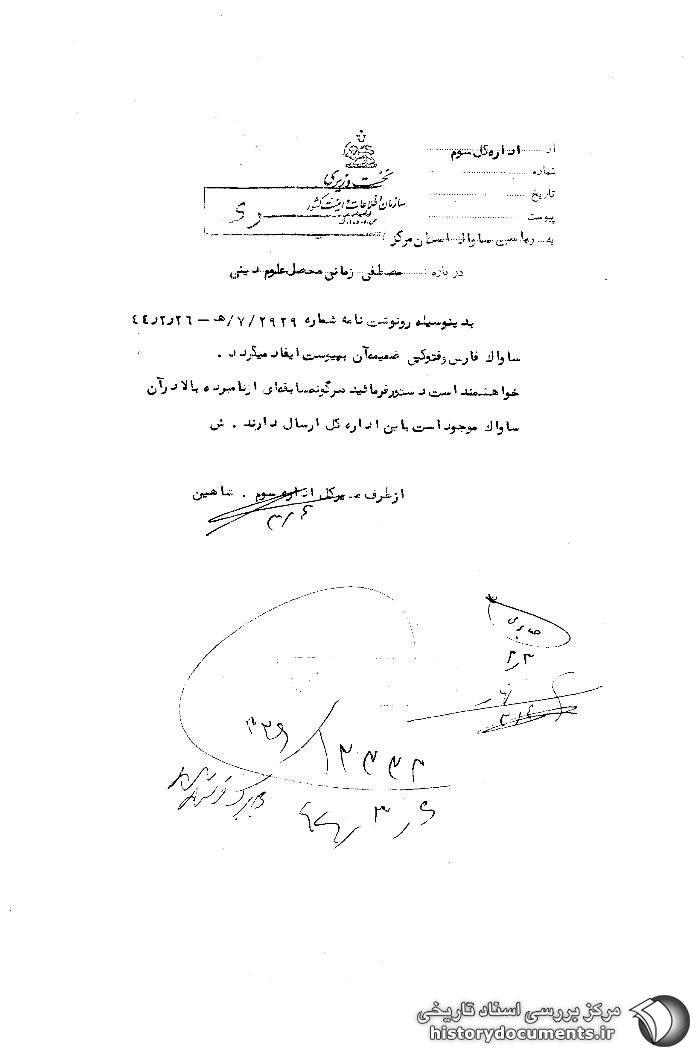 از اداره کل سوم
شماره
تاریخ
پیوست
نخست وزیری
سازمان اطلاعات و امنیت کشور
سری
به ریاست ساواک استان مرکز
درباره : مصطفی زمانی محصل علوم دینی
بدینوسیله رونوشت نامه شماره ۲۹۲۹ /۷/ هـ – ۴۴٫۲٫۲۶
ساواک فارس و فتوکپی ضمیمه آن به پیوست ایفاد میگردد .
خواهشمند است دستور فرمائید هرگونه سابقه‌ای از نامبرده بالا در آن
ساواک موجود است باین اداره کل ارسال دارند . ش
از طرف مدیرکل اداره سوم . شاهین
۳٫۶
صابری
۳٫۳
۳۲۶/۱۲۳۳۲
۶٫۳٫۴۴
مرکز بررسی اسناد تاریخی
historydocuments.ir